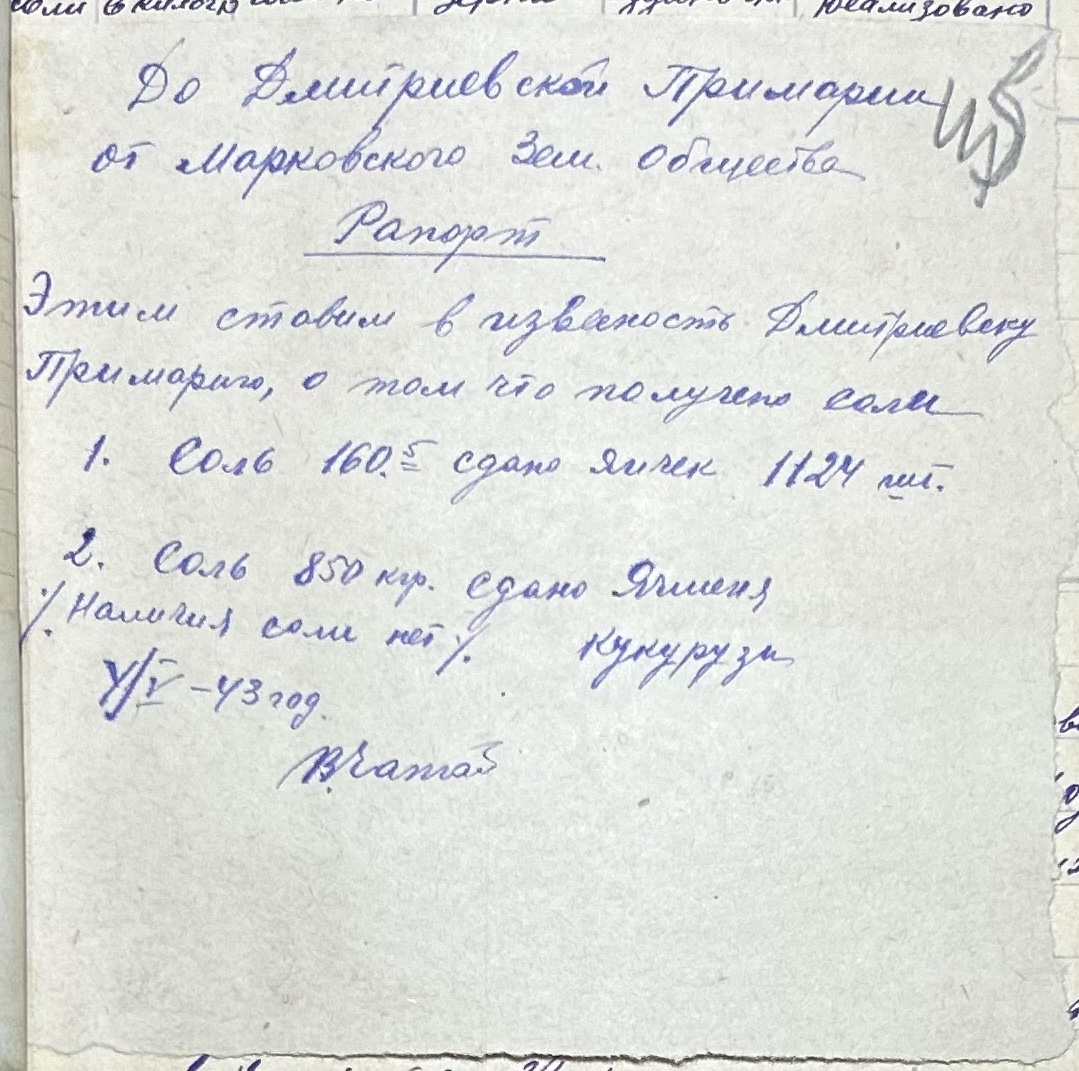 До Дмитриевской Примарии
от Марковского Зем. Общества
Рапорт
Этим ставим в извесность Дмитриевску
Примарию, о том что получено соли
1. Соль 160.5 сдано яичек 1124 шт.
2. Соль 850 кгр. сдано Ячменя
Кукурузи
·/. Наличия соли нет ·/.
-43 год.
реализовано